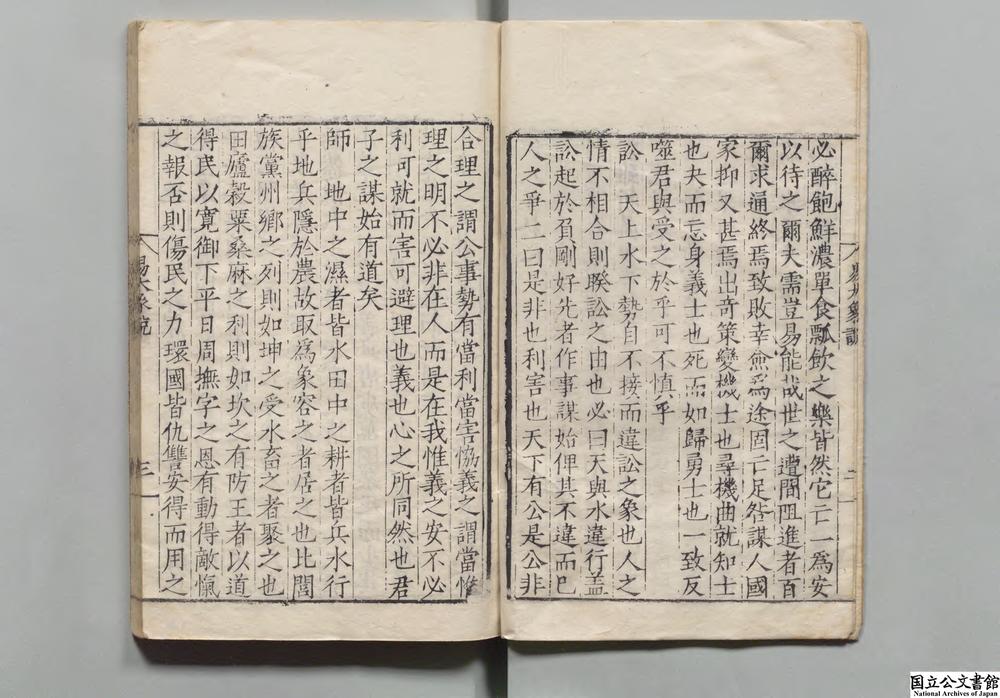 必醉飽鮮濃單食瓢飲之樂皆然它亡一為安
以待之爾夫需豈易能哉世之遭間阻進者百
爾求通終焉致敗幸愈為途固亡足咎謀人國
家抑又甚焉出奇策變機士也尋機曲就知士
也夬而忘身義士也死而如歸勇士也一致反
噬君與受之於乎可不慎乎
訟　天上水下勢自不接而違訟之象也人之
情不相合則睽訟之由也必曰天與水違行盖
訟起於負剛好先者作事謀始俾其不違而已
人之爭二曰是非也利害也天下有公是公非
二
合理之謂公事勢有當利當害恊義之謂當惟
理之明不必非在人而是在我惟義之安不必
利可就而害可避理也義也心之所同然也君
子之謀始有道矣
師　地中之濕者皆水田中之耕者皆兵水行
乎地兵隱於農故取為象容之者居之也比閭
族黨州鄉之列則如坤之受水畜之者聚之也
田廬穀粟桑麻之利則如坎之有防王者以道
得民以寬御下平日周撫字之恩有動得敵愾
之報否則傷民之力環國皆仇讐安得而用之
易大象說
三
国立公文書館
National Archives of Japan